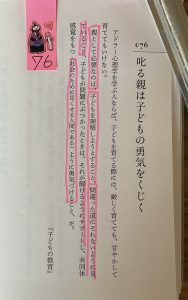 076
叱る親は子どもの勇気をくじく
76
アドラー心理学を学ぶ人ならば、子どもを育てる際には、厳しく育てても、甘やかして
育ててもいけない。
親として必要なのは、「子どもを理解しようとすること」「間違った道にそれないように見
ていること」「子どもが問題にぶつかったときは、それが解けるようにサポートし、共同体
感覚をもつ（社会のために尽くせる人間である）ように勇気づけること」だ。
『子どもの教育』